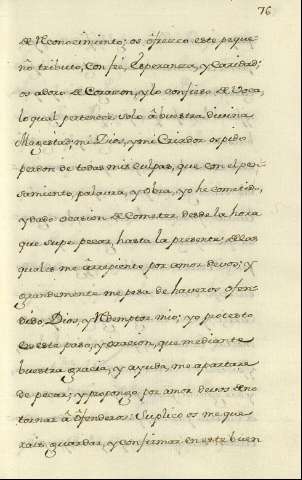 76
de Reconocimiento; os ofresco este peque-
ño tributo, con fé, Esperanza, y Caridad;
os adoro de Corazon, y lo confieso de Voca,
lo qual pertenece solo â vuestra divina
Magestad; mi Dios, y mi Criador os pido
perdon de todas mis culpas, que con el pen-
samiento, palavra, y Obra, yo he cometido,
y dado ocasion de Cometer, desde la hora
que supe pecar, hasta la presente; de las
quales me ârrepiento por amor de vos; y
grandemente me pesa de haveros ofen-
dido, Dios, y Redemptor mio; yo protesto
en este paso, y Oracion, que mediante
vuestra gracia, y ayuda me apartare
de pecar; y propongo por amor de vos de no
tornar â ôfenderos: Suplico os me que-
rais guardar, y confirmar en este buen